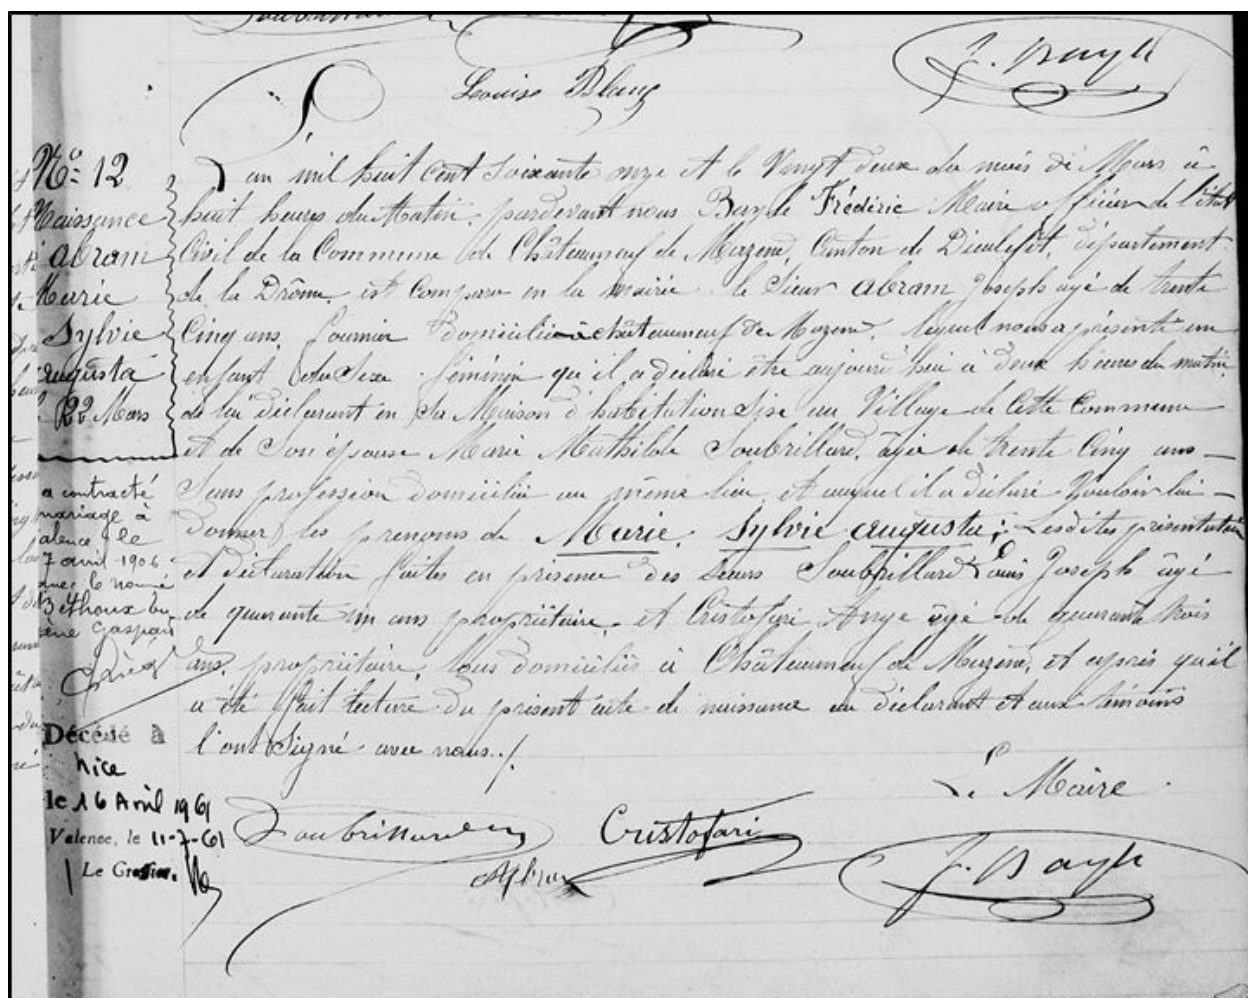 Louise Blanc
F. Bayle
No 12
Naissance
abram
Marie
Sylvie
augusta
22 Mars
a contracté
mariage à
Valence le
7 avril 1906
avec le nommé
Béthoux Eu
gène Gaspard
Décédé à
Nice
le 16 Avril 1961
Valence, le 11-7-61
Le Greffier.
L'an mil huit cent Soixante onze et le Vingt deux du mois de Mars à
huit heures du Matin, pardevant nous Bayle Frédéric Maire officier de l'état
Civil de la Commune de Châteauneuf de Mazenc, Canton de Dieulefit, département
de la Drôme, est Comparu en la mairie le Sieur abram Joseph agé de trente
Cinq ans, fournier domicilié à châteauneuf de Mazenc, lequel nous a présenté un
enfant du Sexe féminin qu'il a déclaré être aujourd'hui à deux heures du matin
de lui déclarant en Sa Maison d'habitation Sise au Village de Cette Commune
et de Son épouse Marie Mathilde Soubrillard, âgée de trente Cinq ans
Sans profession domiciliée au même lieu, et auquel il a déclaré Vouloir lui
donner les prenoms de Marie Sylvie augusta; Lesdites présentation
et déclaration faites en présence des Sieurs Soubrillard Louis Joseph âgé
de quarante un ans propriétaire, et Cristofari Ange âgé de quarante trois
ans, propriétaire, tous domiciliés à Châteauneuf de Mazenc, et après qu'il
a été fait lecture du présent acte de naissance au déclarant et aux témoins
l'ont Signé avec nous./.
Le Maire
Soubrillard Cristofari
Abram F. Bayle